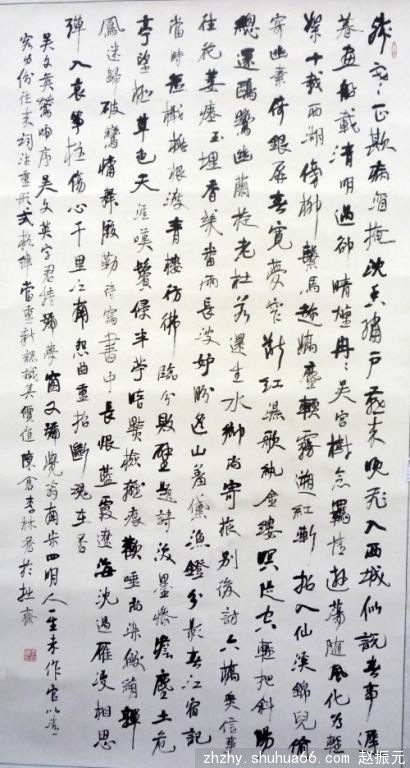 残寒正欺病酒掩沈香繡戶燕来晚飛入西城似說春事遲
暮畫船載清明過却晴煙冉冉吳宮樹念羈情遊蕩随風化為輕
絮十載西湖傍柳繫馬趁嬌塵軟霧遡紅漸招入仙溪錦兒偷
寄幽素倚銀屏春寬夢窄斷紅濕歌紈金縷暝堤空輕把斜陽
總還鷗鷺幽蘭旋老杜若還生水鄉尚寄旅別後訪六橋無信事
往花萎瘞玉埋香幾番雨長波妒盼遙山羞黛漁燈分影春江宿記
當時短楫桃根渡青樓彷彿臨分敗壁題詩淚墨慘澹塵土危
亭望極草色天涯嘆鬢侵半苧暗點檢離痕歡唾尚染鮫綃嚲
鳳迷歸破鸞慵舞殷勤待寫書中長恨藍霞遼海沈過雁漫相思
彈入哀箏柱傷心千里江南怨曲重招斷魂在否
吳文英鶯啼序吳文英字君特號夢窗又號覺翁南宋四明人一生未作官以清
客身份往来詞注重形式格律當重新認識其價值於拙齋
zhzhy.shuhua66.com 赵振元